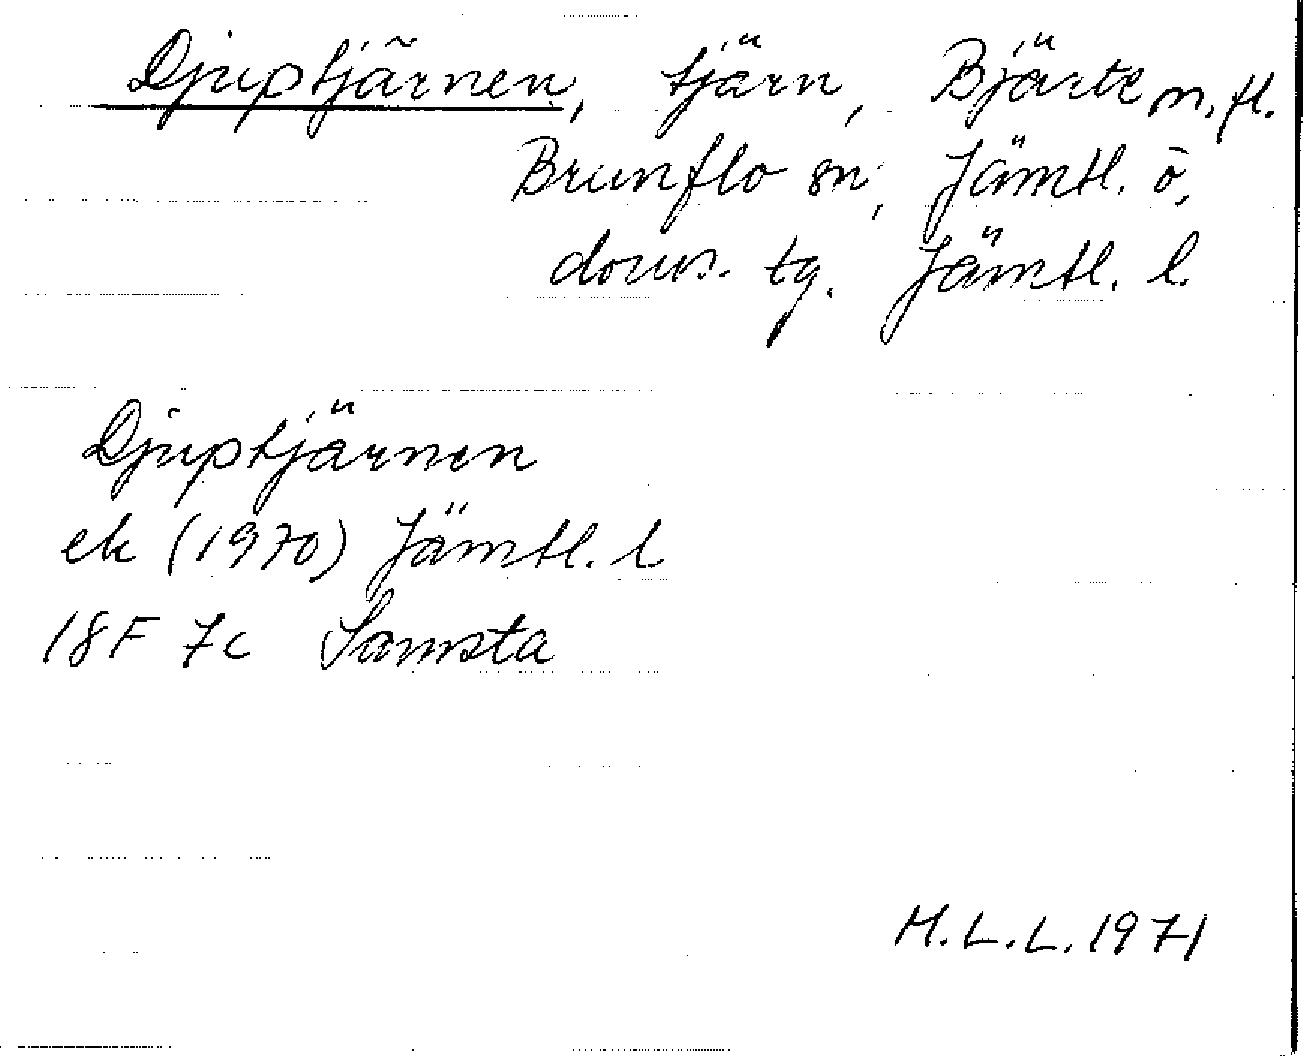 Djuptjärnen, tjärn, Bjärte m. fl.
Brunflo sn, Jämtl. ö.
doms. tg. Jämtl. l.
Djuptjärnen
ek (1970) Jämtl. l
18F 7c Samsta
M.L.L. 1971